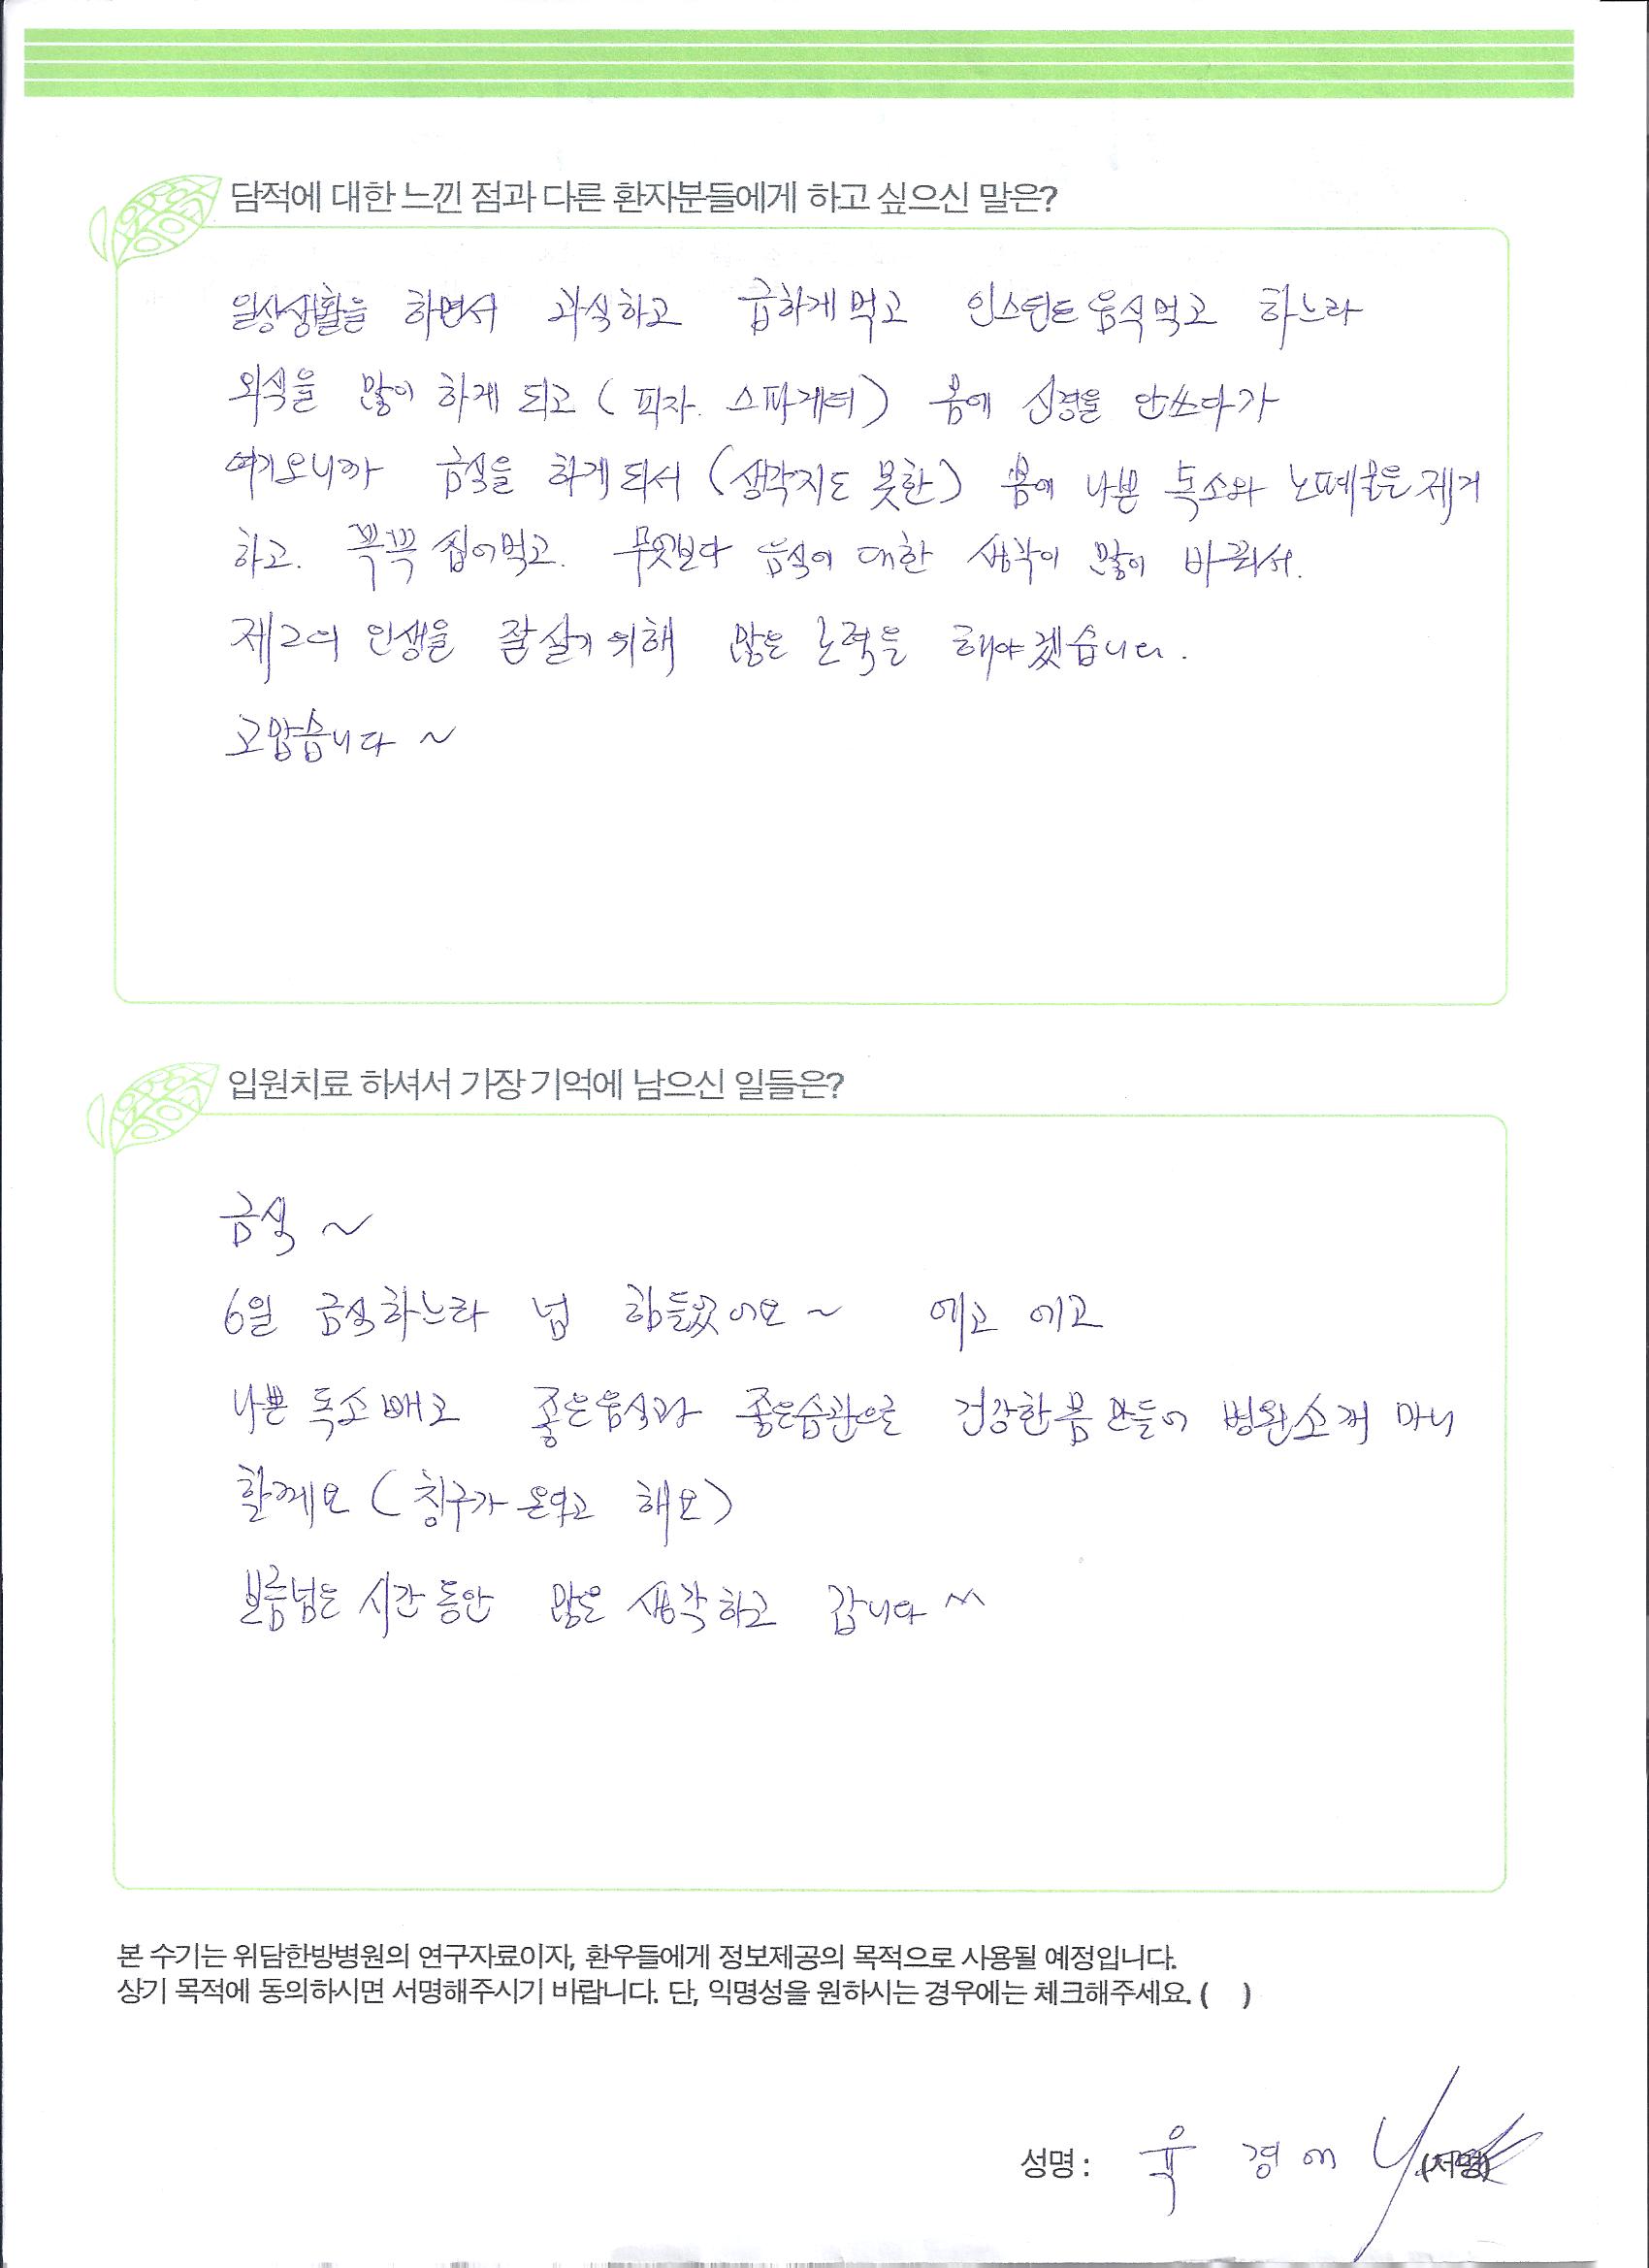 담적에 대한 느낀 점과 다른 환자분들에게 하고 싶으신 말은?
일상생활을 하면서 과식하고 급하게 먹고 인스턴트 음식먹고 하느라
외식을 많이 하게 되고 ( 피자. 스파게티 ) 몸에 신경을 안쓰다가
여기오니까 금식을 하게되서 (생각지도 못한) 몸에 나쁜 독소와 노폐물을 제거
하고. 꼭꼭 씹어먹고. 무엇보다 음식에 대한 생각이 많이 바뀌서.
제2의 인생을 잘살기위해 많은 노력을 해야겠습니다.
고맙습니다 ~
입원치료 하셔서 가장 기억에 남으신 일들은?
금식 ~
6일 금식하느라 넘 힘들었어요 ~ 에고 에고
나쁜 독소빼고 좋은음식과 좋은습관으로 건강한몸만들어 병원소개 마니
할께요 ( 칭구가 온다고 해요 )
보름넘는 시간동안 많은 생각하고 갑니다 ^^
본 수기는 위담한방병원의 연구자료이자, 환우들에게 정보제공의 목적으로 사용될 예정입니다.
상기 목적에 동의하시면 서명해주시기 바랍니다. 단, 익명성을 원하시는 경우에는 체크해주세요. ( )
성명 : 육 경애 (서명)